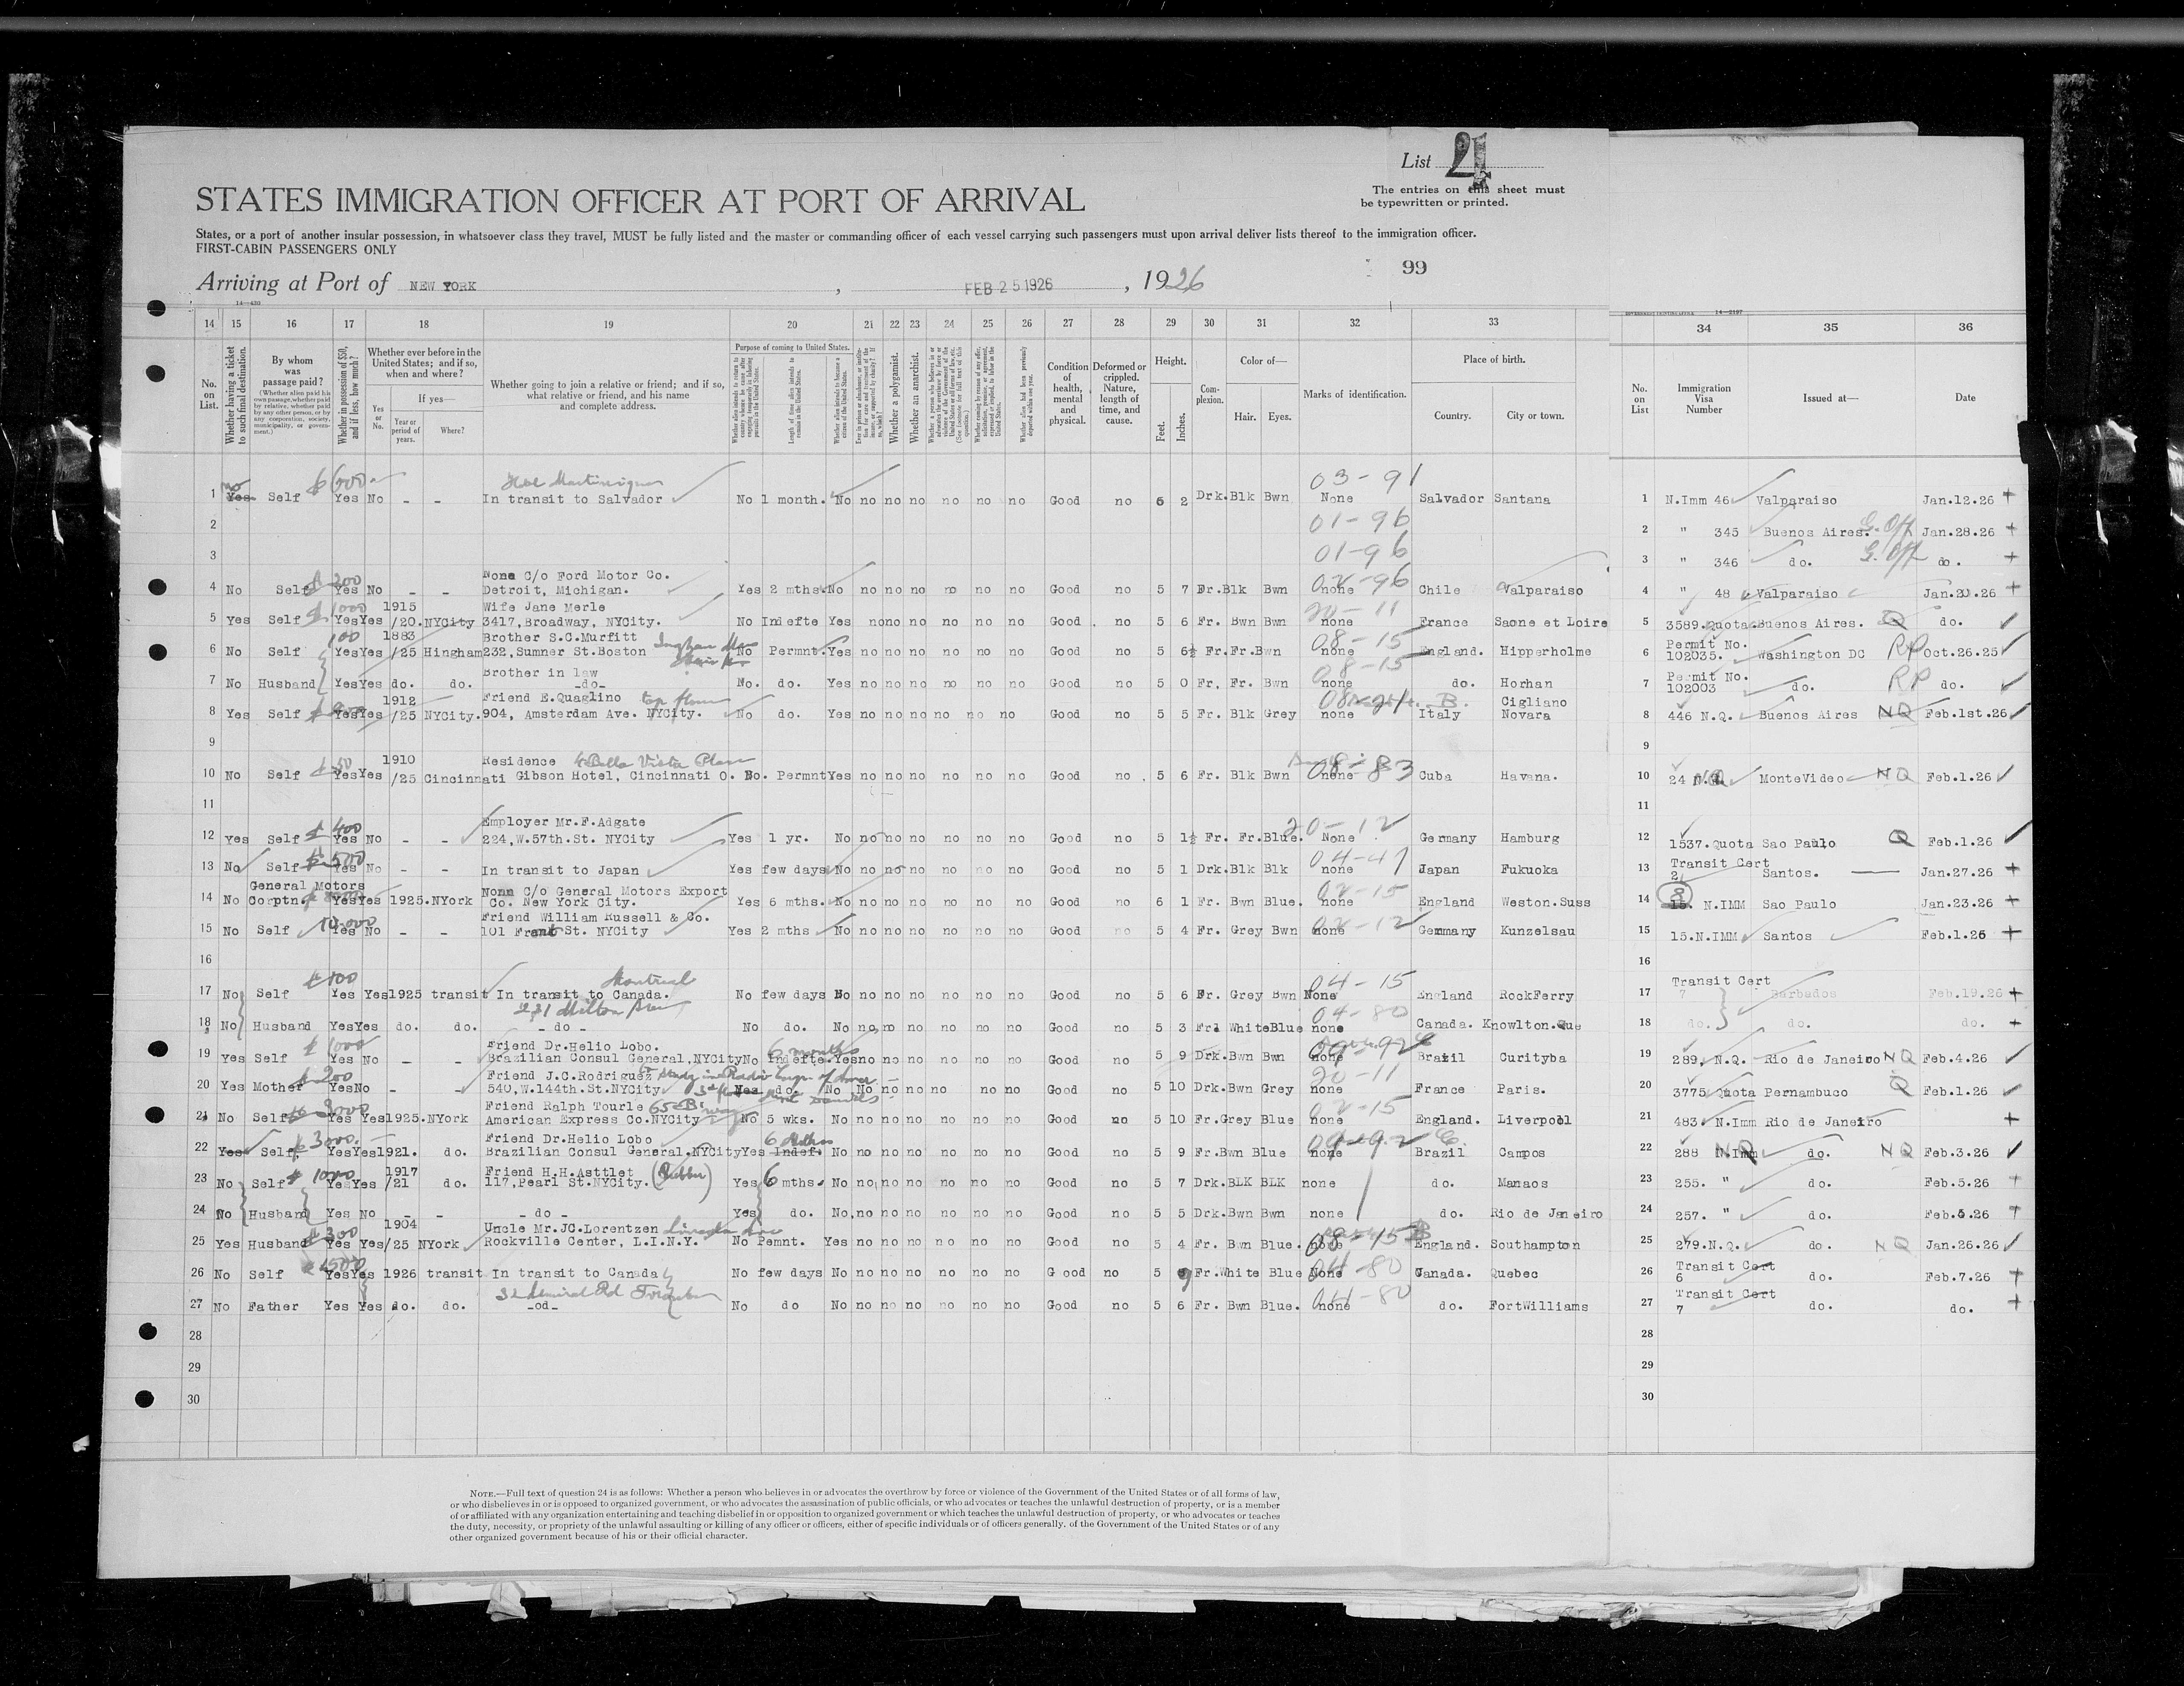 List 4
The entries on this sheet must
be typewritten or printed.
STATES IMMIGRATION OFFICER AT PORT OF ARRIVAL
States, or a port of another insular possession, in whatsoever class they travel, MUST be fully listed and the master or commanding officer of each vessel carrying such passengers must upon arrival deliver lists thereof to the immigration officer.
FIRST-CABIN PASSENGERS ONLY
99
Arriving at Port of NEW YORK , FEB 25 1926 , 1926
14 15 16 17 18 19 20 21 22 23 24 25 26 27 28 29 30 31 32 33 34 35 36
No. on List.
Whether having a ticket to such final destination.
By whom was passage paid?
(Whether alien paid his own passage, whether paid by relative, whether paid by any other person, or by any corporation, society, municipality, or government.)
Whether in possession of $50, and if less, how much?
Whether ever before in the United States; and if so, when and where?
Yes or No.
If yes—
Year or period of years.
Where?
Whether going to join a relative or friend; and if so, what relative or friend, and his name and complete address.
Purpose of coming to United States.
Length of time alien intends to remain in the United States.
Whether a polygamist.
Whether an anarchist.
Condition of health, mental and physical.
Deformed or crippled. Nature, length of time, and cause.
Height.
Feet.
Inches.
Complexion.
Color of—
Hair.
Eyes.
Marks of identification.
Place of birth.
Country.
City or town.
No. on List
Immigration Visa Number
Issued at—
Date
03-91
1 no Yes Self $600 Yes No - - In transit to Salvador No 1 month. No no no no no no no Good no 6 2 Drk.Blk Bwn None Salvador Santana 1 N.Imm 46 Valparaiso Jan.12.26 +
2 01-96 2 " 345 Buenos Aires. G. Off Jan.28.26 +
3 01-96 3 " 346 do. G. Off do. +
None C/o Ford Motor Co.
4 No Self $200 Yes No - - Detroit, Michigan. Yes 2 mths. No no no no no no no Good no 5 7 Fr.Blk Bwn 02-96 none Chile Valparaiso 4 " 48 Valparaiso Jan.20.26 +
1915 Wife Jane Merle
5 Yes Self $1000 YesYes /20.NYCity 3417,Broadway, NYCity. No Indefte Yes no no no no no no Good. no 5 6 Fr. Bwn Bwn 20-11 none France Saone et Loire 5 3589.Quota Buenos Aires. Q do.
1883 Brother S.C.Murfitt
6 No Self 100 YesYes /25 Hingham 232,Sumner St.Boston No Permnt. Yes no no no no no no Good no 5 6½ Fr.Fr.Bwn 08-15 none England. Hipperholme 6 Permit No. 102035. Washington DC RP Oct.26.25
Brother in law
7 No Husband YesYes do. do. -do- No. do. Yes no no no no no no Good no 5 0 Fr, Fr. Bwn 08-15 none do. Horhan 7 Permit No. 102003 do. RP do.
1912 Friend E.Quaglino top floor Cigliano
8 Yes Self YesYes /25 NYCity. 904, Amsterdam Ave. NYCity. No do. Yes no no no no no no Good no 5 5 Fr. Blk Grey none Italy Novara 8 446 N.Q. Buenos Aires NQ Feb.1st.26
9 9
1910 Residence 4 Bella Vista Place
10 No Self $50 YesYes /25 Cincinnati Gibson Hotel, Cincinnati O. No. Permnt Yes no no no no no no Good no. 5 6 Fr. Blk Bwn 08-83 none Cuba Havana. 10 24 N.Q. MonteVideo NQ Feb.1.26
11 11
Employer Mr.F.Adgate
12 yes Self $400 Yes No - - 224,W.57th.St. NYCity Yes 1 yr. No no no no no no no Good no 5 1½ Fr. Fr.Blue. 20-12 None Germany Hamburg 12 1537.Quota Sao Paulo Q Feb.1.26
13 No Self $500 Yes No - - In transit to Japan Yes few days No no no no no no no Good no 5 1 Drk.Blk Blk 04-41 none Japan Fukuoka 13 Transit Cert 2 Santos. Jan.27.26 +
General Motors None C/o General Motors Export
14 No Corptn. YesYes 1925.NYork Co. New York City. Yes 6 mths. No no no no no no no Good no 6 1 Fr. Bwn Blue. 02-15 none England Weston.Suss 14 8 N.IMM Sao Paulo Jan.23.26 +
Friend William Russell & Co.
15 No Self 10.000 Yes No - - 101 Front St. NYCity Yes 2 mths No no no no no no no Good no 5 4 Fr. Grey Bwn 02-12 none Germany Kunzelsau 15 15.N.IMM Santos Feb.1.26 +
16 16
Montreal
17 No Self $100 Yes Yes 1925 transit In transit to Canada. No few days No no no no no no no Good no 5 6 Fr. Grey Bwn 04-15 None England RockFerry 17 Transit Cert 7 Barbados Feb.19.26 +
18 No Husband YesYes do. do. - do - No do. No no no no no no no Good no 5 3 Frl WhiteBlue 04-80 none Canada. Knowlton.Que 18 do. do. do. +
Friend Dr.Helio Lobo. 6 months
19 Yes Self $1000 Yes No - - Brazilian Consul General,NYCity No Indefte. Yes no no no no no no Good no 5 9 Drk.Bwn Bwn none Brazil Curityba 19 289, N.Q. Rio de Janeiro NQ Feb.4.26
Friend J.C.Rodriguez
20 Yes Mother $200 YesNo - - 540,W.144th.St.NYCity Yes do. No No no no no no no Good no 5 10 Drk.Bwn Grey 20-11 none France Paris. 20 3775 Quota Pernambuco Q Feb.1.26
Friend Ralph Tourle 65 B'way
21 No Self Yes Yes1925.NYork American Express Co.NYCity No 5 wks. No no no no no no no Good no 5 10 Fr.Grey Blue 02-15 none England. Liverpool 21 483 N.Imm Rio de Janeiro +
Friend Dr.Helio Lobo
22 Yes Self $3000. YesYes1921. do. Brazilian Consul General.NYCity Yes Indef. No no no no no no no Good no 5 9 Fr.Bwn Blue none Brazil Campos 22 288 N.Imm NQ do. NQ Feb.3.26
1917 Friend H.H.Asttlet (Rubber)
23 No Self $1000 YesYes /21 do. 117,Pearl St.NYCity. Yes 6 mths. No no no no no no no Good no 5 7 Drk.BLK BLK none do. Manaos 23 255. " do. Feb.5.26 +
24 No Husband Yes No - - - do - Yes do. No,no no no no no no Good no 5 5 Drk.Bwn Bwn none do. Rio de Janeiro 24 257. " do. Feb.5.26 +
1904 Uncle Mr.JC.Lorentzen
25 Yes Husband $300 Yes Yes/25 NYork Rockville Center, L.I.N.Y. No Pemnt. Yes no no no no no no Good no 5 4 Fr. Bwn Blue. 08-15 none England. Southampton 25 279.N.Q. do. NQ Jan.26.26
26 No Self YesYes 1926 transit In transit to Canada No few days No no no no no no no Good no 5 9 Fr.White Blue 04-80 None Canada. Quebec 26 Transit Cert 6 do. Feb.7.26 +
27 No Father Yes Yes do. do. -od- No do No no no no no no no Good no 5 6 Fr. Bwn Blue. 04-80 none do. FortWilliams 27 Transit Cert 7 do. do. +
28 28
29 29
30 30
NOTE.—Full text of question 24 is as follows: Whether a person who believes in or advocates the overthrow by force or violence of the Government of the United States or of all forms of law,
or who disbelieves in or is opposed to organized government, or who advocates the assassination of public officials, or who advocates or teaches the unlawful destruction of property, or is a member
of or affiliated with any organization entertaining and teaching disbelief in or opposition to organized government or which teaches the unlawful destruction of property, or who advocates or teaches
the duty, necessity, or propriety of the unlawful assaulting or killing of any officer or officers, either of specific individuals or of officers generally. of the Government of the United States or of any
other organized government because of his or their official character.